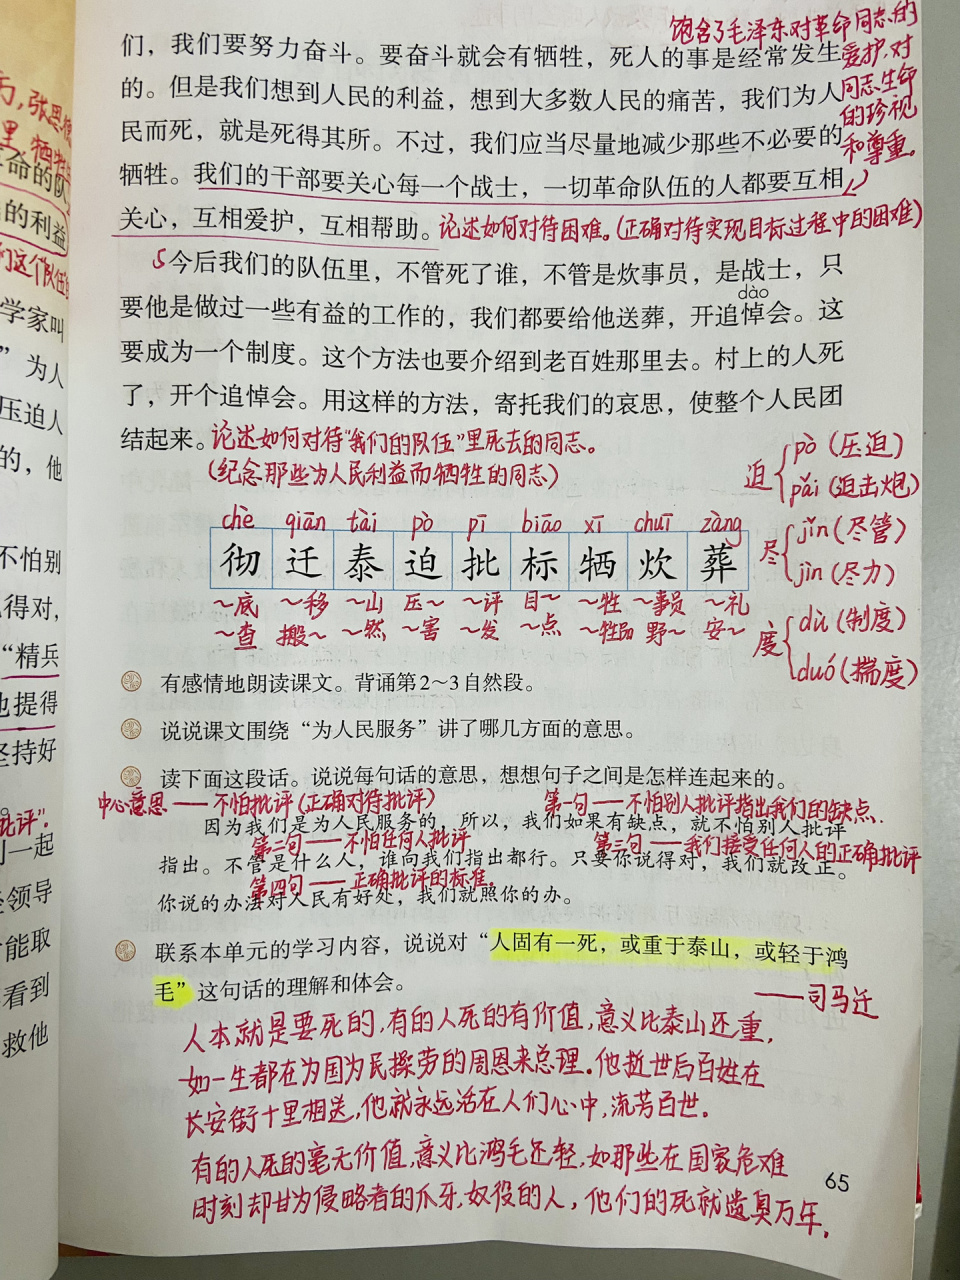 饱含了毛泽东对革命同志的
爱护,对
同志生命
的珍视
和尊重。
们，我们要努力奋斗。要奋斗就会有牺牲，死人的事是经常发生
的。但是我们想到人民的利益，想到大多数人民的痛苦，我们为人
民而死，就是死得其所。不过，我们应当尽量地减少那些不必要的
牺牲。我们的干部要关心每一个战士，一切革命队伍的人都要互相
关心，互相爱护，互相帮助。
论述如何对待困难。(正确对待实现目标过程中的困难)
5
今后我们的队伍里，不管死了谁，不管是炊事员，是战士，只
dào
要他是做过一些有益的工作的，我们都要给他送葬，开追悼会。这
要成为一个制度。这个方法也要介绍到老百姓那里去。村上的人死
了，开个追悼会。用这样的方法，寄托我们的哀思，使整个人民团
结起来。
论述如何对待"我们的队伍"里死去的同志。
(纪念那些为人民利益而牺牲的同志)
迫 pò (压迫)
pǎi (迫击炮)
尽 jǐn (尽管)
jìn (尽力)
度 dù (制度)
duó (揣度)
chè qiān tài pò pī biāo xī chuī zàng
彻 迁 泰 迫 批 标 牺 炊 葬
～底 ～移 ～山 压～ ～评 目～ ～牲 ～事员 ～礼
～查 搬～ ～然 ～害 ～发 ～点 ～牲品 野～ 安～
有感情地朗读课文。背诵第2～3自然段。
说说课文围绕“为人民服务”讲了哪几方面的意思。
读下面这段话。说说每句话的意思，想想句子之间是怎样连起来的。
中心意思——不怕批评(正确对待批评)
第一句——不怕别人批评指出我们的缺点.
因为我们是为人民服务的，所以，我们如果有缺点，就不怕别人批评
第二句——不怕任何人批评
第三句——我们接受任何人的正确批评
指出。不管是什么人，谁向我们指出都行。只要你说得对，我们就改正。
第四句——正确批评的标准。
你说的办法对人民有好处，我们就照你的办。
联系本单元的学习内容，说说对“人固有一死，或重于泰山，或轻于鸿
毛”这句话的理解和体会。
——司马迁
人本就是要死的,有的人死的有价值,意义比泰山还重,
如一生都在为国为民操劳的周恩来总理。他逝世后百姓在
长安街十里相送,他就永远活在人们心中,流芳百世。
有的人死的毫无价值,意义比鸿毛还轻,如那些在国家危难
时刻却甘为侵略者的爪牙,奴役的人，他们的死就遗臭万年.
65
里
命的队
的利益
们这个队伍
学家叫
”为人
压迫人
的，他
不怕别
得对，
“精兵
也提得
坚持好
批评".
一起
领导
才能取
看到
救他